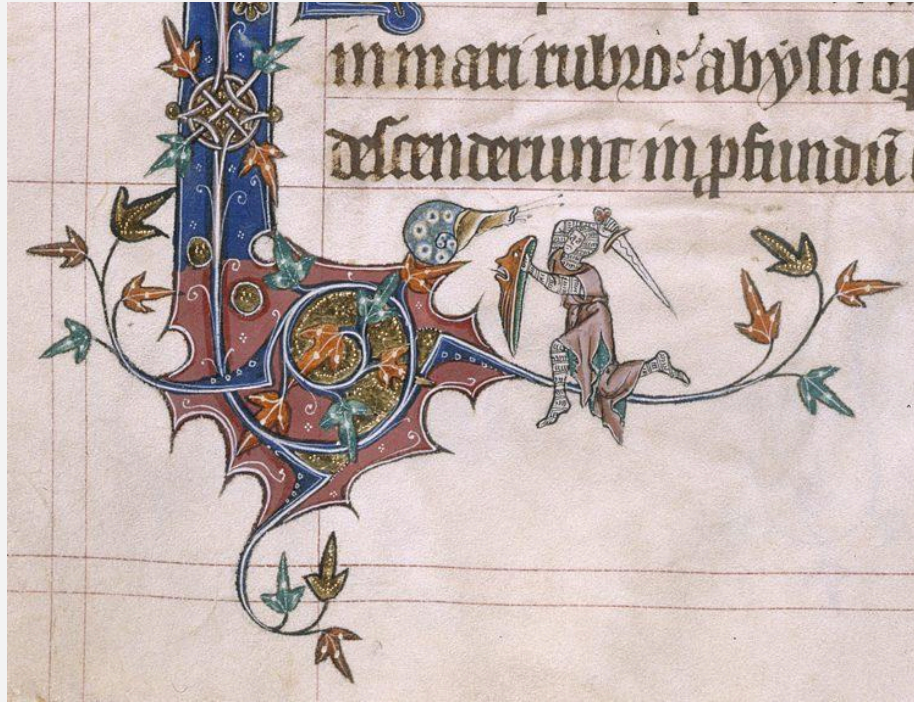 in mari rubro: abyssi op
descenderunt in pfundū